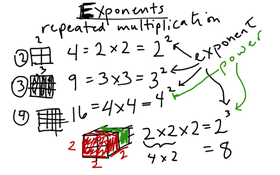 Exponents
repeated multiplication
2
② 4 = 2 × 2 = 2²
exponent
power
3
③ 9 = 3 × 3 = 3²
④ 16 = 4 × 4 = 4²
2 2 2
2 × 2 × 2 = 2³
4 × 2 = 8